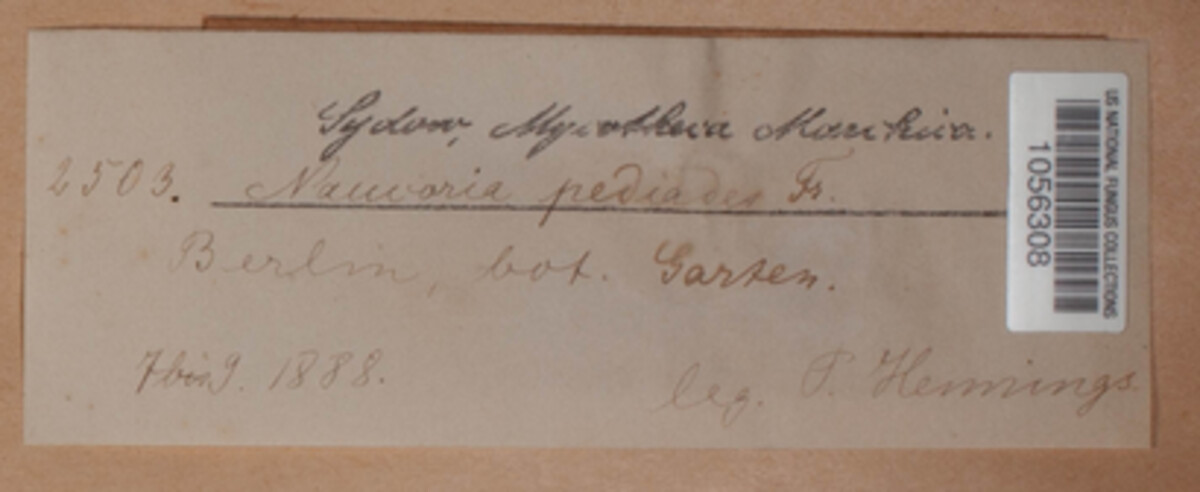 Sydow, Mycotheca Marchica.
2503. Naucoria pediades Fr.
Berlin, bot. Garten.
7 bis 9. 1888.
leg. P. Hennings.
US NATIONAL FUNGUS COLLECTIONS
1056308